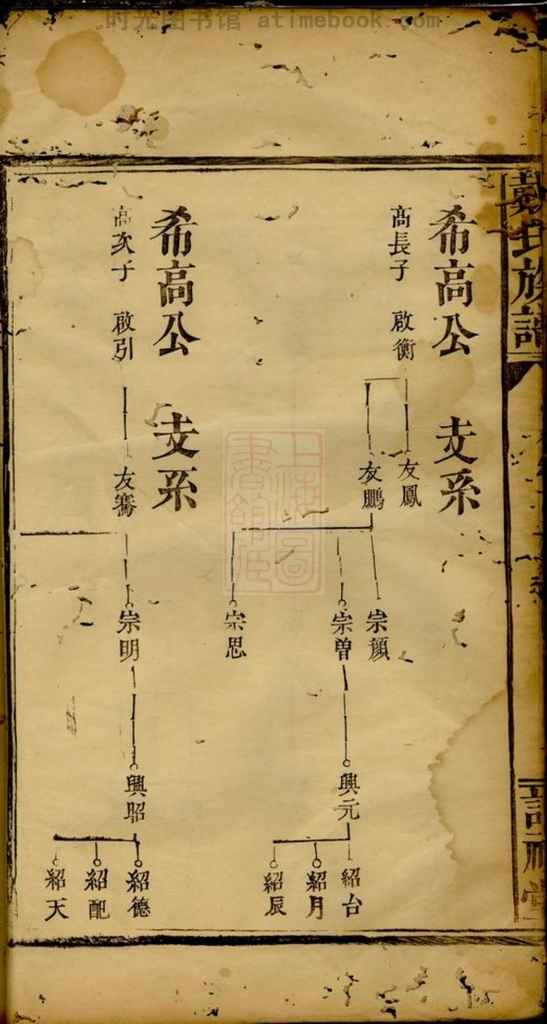 时光图书馆 atimebook.com
戴氏族譜
希高公 支系
高長子 啟衡
友鳳
友鵬
宗顏
宗曾
宗思
興元
紹台
紹月
紹辰
希高公 支系
高次子 啟引
友騫
宗明
興昭
紹德
紹配
紹天